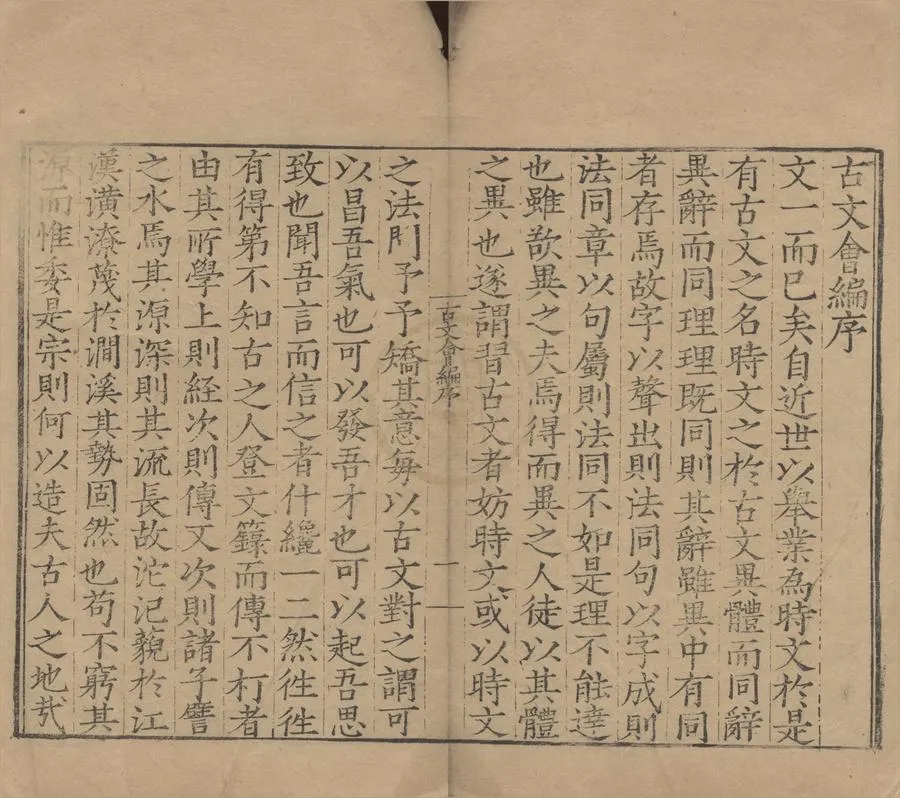 古文會編序
文一而已矣自近世以舉業為時文於是
有古文之名時文之於古文異體而同辭
異辭而同理理既同則其辭雖異中有同
者存焉故字以聲出則法同句以字成則
法同章以句屬則法同不如是理不能達
也雖欲異之夫焉得而異之人徒以其體
之異也遂謂習古文者妨時文或以時文
古文會編序
一
之法門予予矯其意每以古文對之謂可
以昌吾氣也可以發吾才也可以起吾思
致也聞吾言而信之者什纔一二然徃徃
有得第不知古之人登文籙而傳不朽者
由其所學上則経次則傳文次則諸子譬
之水焉其源深則其流長故沱汜藐於江
漢潢潦蔑於澗溪其勢固然也苟不窮其
源而惟委是宗則何以造夫古人之地㢤